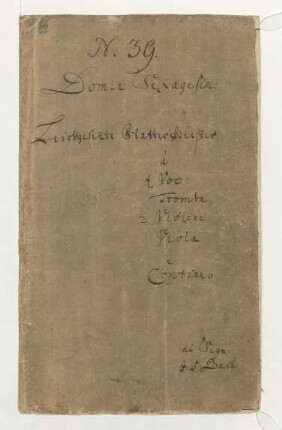 N. 39.
Domin: Sexagesim:
Leichtgesinnte Flattergeister
à
4 Voc:
Tromba
2 Violini
Viola
e
Continuo
di Sign
J S Bach